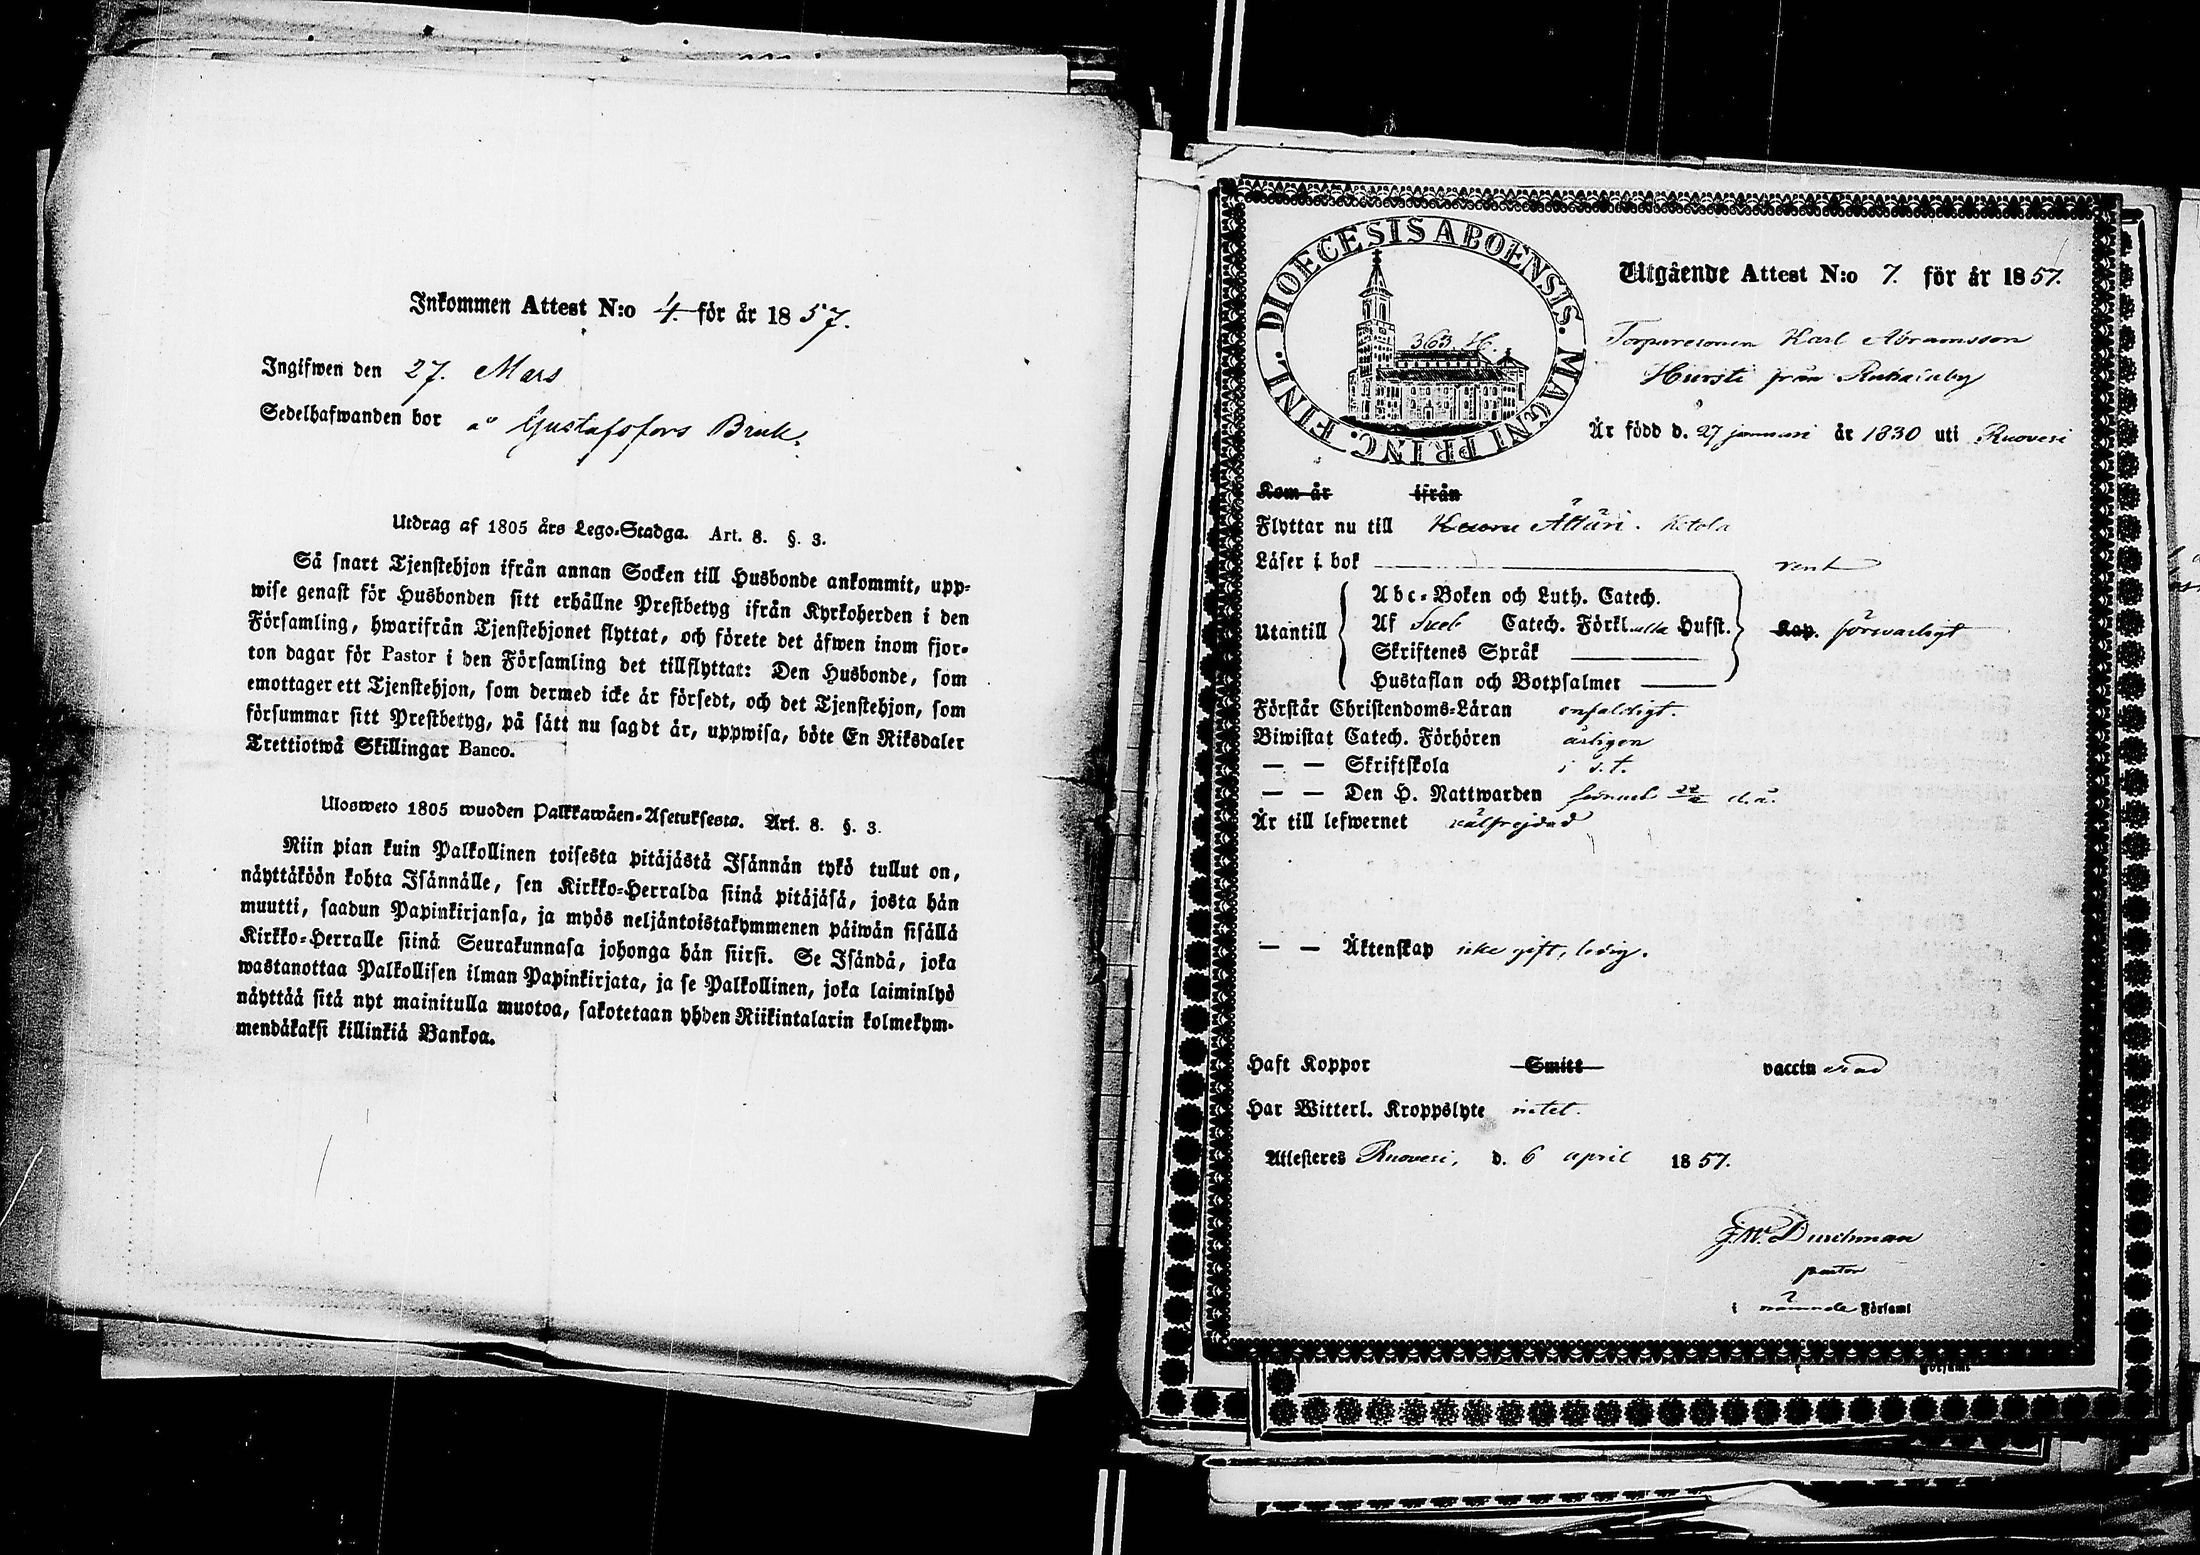 Inkommen Attest N:o 4. för år 1857.
Ingifwen den 27. Mars
Sedelhafwanden bor å Gustafsfors Bruk.
Utdrag af 1805 års Lego-Stadga. Art. 8. §. 3.
Så snart Tjenstehjon ifrån annan Socken till Husbonde ankommit, upp-
wise genast för Husbonden sitt erhållne Prestbetyg ifrån Kyrkoherden i den
Församling, hwarifrån Tjenstehjonet flyttat, och förete det äfwen inom fjor-
ton dagar för Pastor i den Församling det tillflyttat: Den Husbonde, som
emottager ett Tjenstehjon, som dermed icke är försedt, och det Tjenstehjon, som
försummar sitt Prestbetyg, på sätt nu sagdt är, uppwisa, böte En Riksdaler
Trettiotwå Skillingar Banco.
Ulosweto 1805 wuoden Palkkawäen-Asetuksesta. Art. 8. §. 3.
Niin pian kuin Palkollinen toisesta pitäjästä Isännän tykö tullut on,
näyttäköön kohta Isännälle, sen Kirkko-Herralda siinä pitäjäsä, josta hän
muutti, saadun Papinkirjansa, ja myös neljäntoistakymmenen päiwän sisällä
Kirkko-Herralle siinä Seurakunnasa johonga hän siirsi. Se Isändä, joka
wastanottaa Palkollisen ilman Papinkirjata, ja se Palkollinen, joka laiminlyö
näyttää sitä nyt mainitulla muotoa, sakotetaan yhden Riikintalarin kolmekym-
mendäkaksi killinkiä Bankoa.
DIOECESIS ABOENSIS. MAGNI PRINC. FINL.
363. H.
Utgående Attest N:o 7. för år 1857.
Torparesonen Karl Abramsson
Hursti från Ruhalaby
Är född d. 27 januari år 1830 uti Ruovesi
Kom år ifrån
Flyttar nu till Ätsäri. Ketola
Läser i bok rent
Utantill
Abc-Boken och Luth. Catech.
Af Sveb Catech. Förkl. alla Hufst. Kap. försvarligt
Skriftenes Språk
Hustaflan och Botpsalmer
Förstår Christendoms-Läran enfaldigt.
Biwistat Catech. Förhören årligen
— — Skriftskola i s.t.
— — Den H. Nattwarden d.å.
Är till lefwernet välfrejdad
— — Äktenskap icke gift, ledig.
Haft Koppor Smitt vaccinerad
Har Witterl. Kroppslyte intet.
Attesteres Ruovesi, d. 6 april 1857.
F.W. Durchman
pastor
i nämnde Församl
Församl